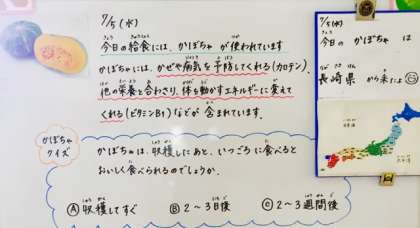 7/5(水)
今日の給食には、かぼちゃが使われています
かぼちゃには、かぜや病気を予防してくれる(カロテン)、
他の栄養と合わさり、体を動かすエネルギーに変えて
くれる(ビタミンB1)などが含まれています。
かぼちゃクイズ
かぼちゃは、収穫したあと、いつごろに食べると
おいしく食べられるのでしょうか。
Ⓐ収穫してすぐ Ⓑ2〜3日後 Ⓒ2〜3週間後
7/5(水)
今日の かぼちゃ は
長崎県 から来たよ